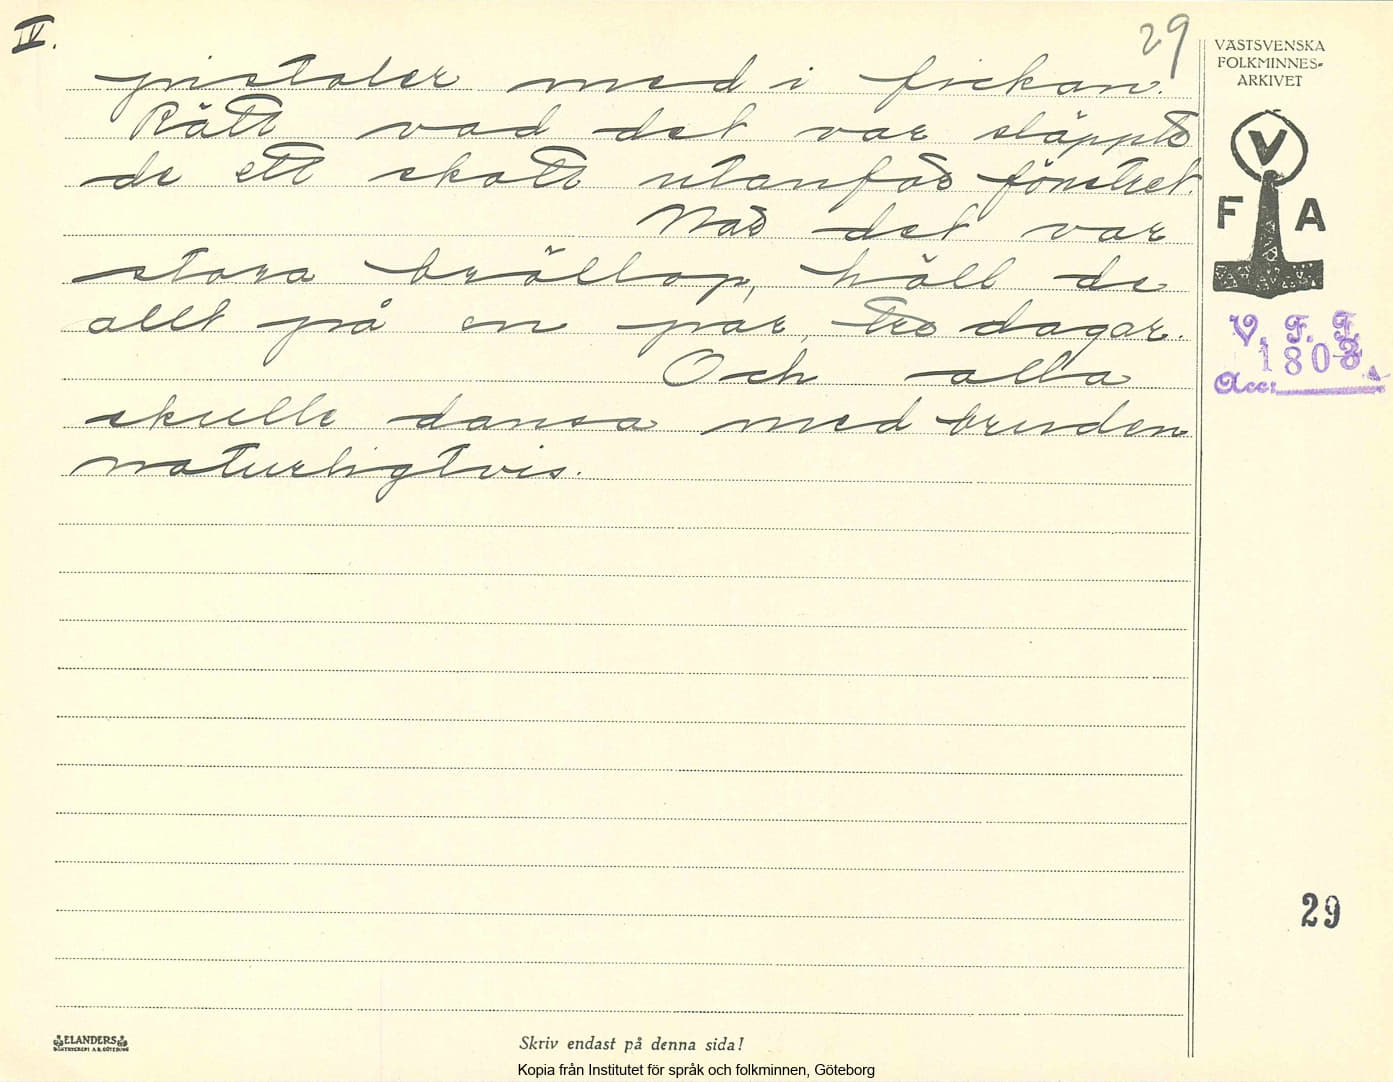 IV.
29
VÄSTSVENSKA
FOLKMINNES-
ARKIVET
pistoler med i fickan.
Rätt vad det var släppte
de ett skott utanför fönstret.
När det var
stora bröllop, höll de
allt på en par, tre dagar.
Och alla
skulle dansa med bruden
naturligtvis.
V
F A
V. F. F.
1803
Acc:
29
ELANDERS
BOKTRYCKERI A.B. GÖTEBORG
Skriv endast på denna sida!
Kopia från Institutet för språk och folkminnen, Göteborg